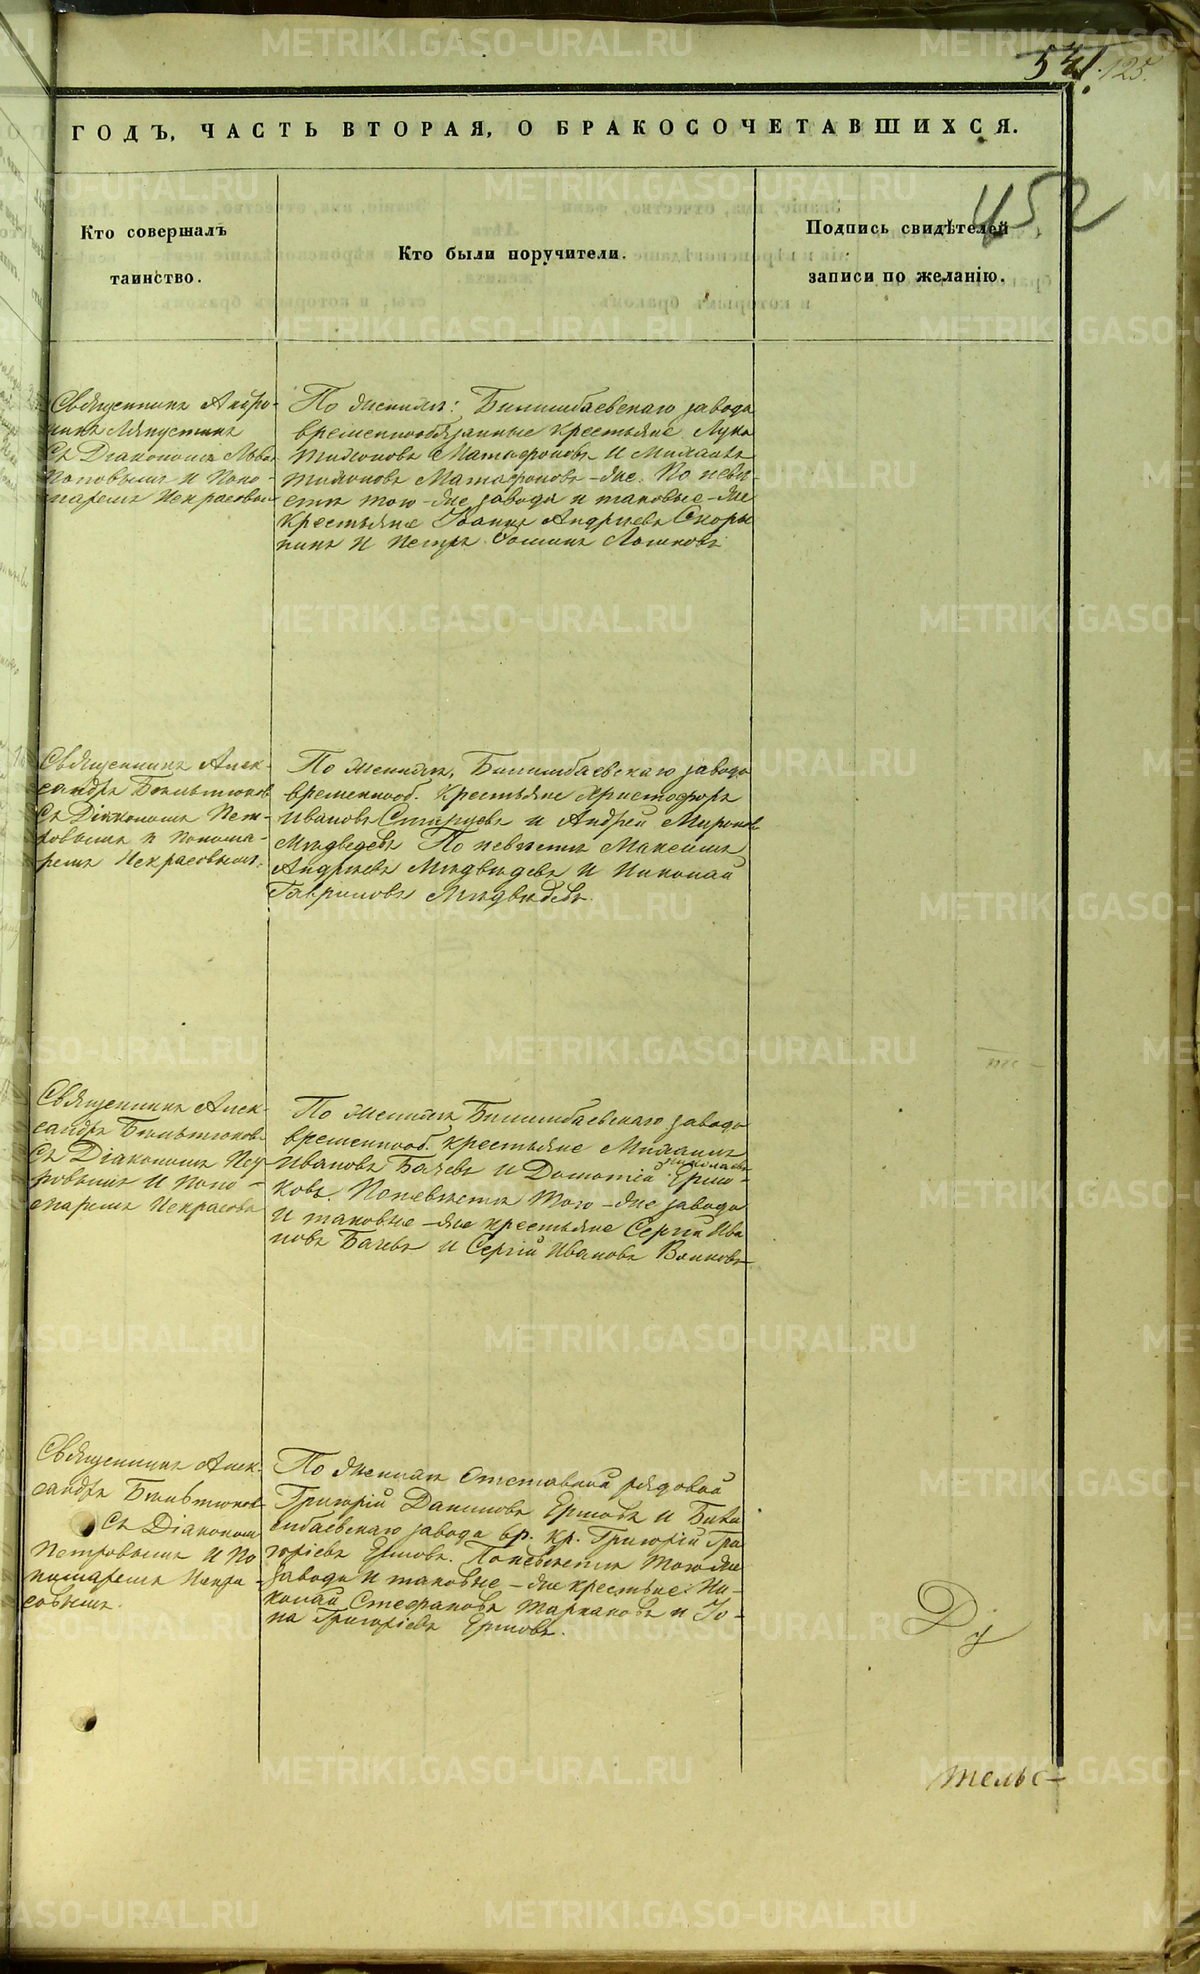 125.
ГОДЪ, ЧАСТЬ ВТОРАЯ, О БРАКОСОЧЕТАВШИХСЯ.
452
Кто совершалъ
таинство.
Кто были поручители.
Подпись свидѣтелей
записи по желанію.
Священникъ
Съ Діакономъ Львом
Поповымъ и Поно-
маремъ Некрасовым
По женихѣ: Билимбаевскаго завода
временнообязанные крестьяне Лука
Тихоновъ Матафоновъ и Михаилъ
Тихоновъ Матафоновъ-же. По невѣ-
стѣ того-же завода и таковые-же
крестьяне Іоаннъ Андреевъ Скоры
нинъ и Петръ Ѳоминъ
Священникъ Алек-
сандръ
Съ Діакономъ Пет-
ровымъ и понома-
ремъ Некрасовымъ.
По женихѣ, Билимбаевскаго завода
временнооб. крестьяне Христофоръ
Ивановъ и Андрей Миронов
Мѣдведевъ По невѣстѣ Максимъ
Андреевъ Мѣдвѣдевъ и Николай
Гавриловъ Мѣдвѣдевъ.
Священникъ Алек-
сандръ
Съ Діакономъ Пет
ровымъ и поно-
маремъ Некрасовы
По женихѣ Билимбаевскаго завода
временнооб. крестьяне Михаилъ
Ивановъ Бачевъ и Николаевъ
Поневѣстѣ того-же завода
и таковые-же крестьяне Сергій Ива
новъ Бачевъ и Сергій Ивановъ
Священникъ Алек-
сандръ
Съ Діакономъ
Петровымъ и По
номаремъ Некра-
совымъ.
По женихѣ Отставной рядовой
Григорій Даниловъ Ершовъ и Били
мбаевскаго завода вр. кр. Григорій Гри
горіевъ Ершовъ. Поневѣстѣ того же
завода и таковые-же крестьяне: Ни-
колай Стефановъ и Іо-
на Григоріевъ Ершовъ.
тельс-
METRIKI.GASO-URAL.RU